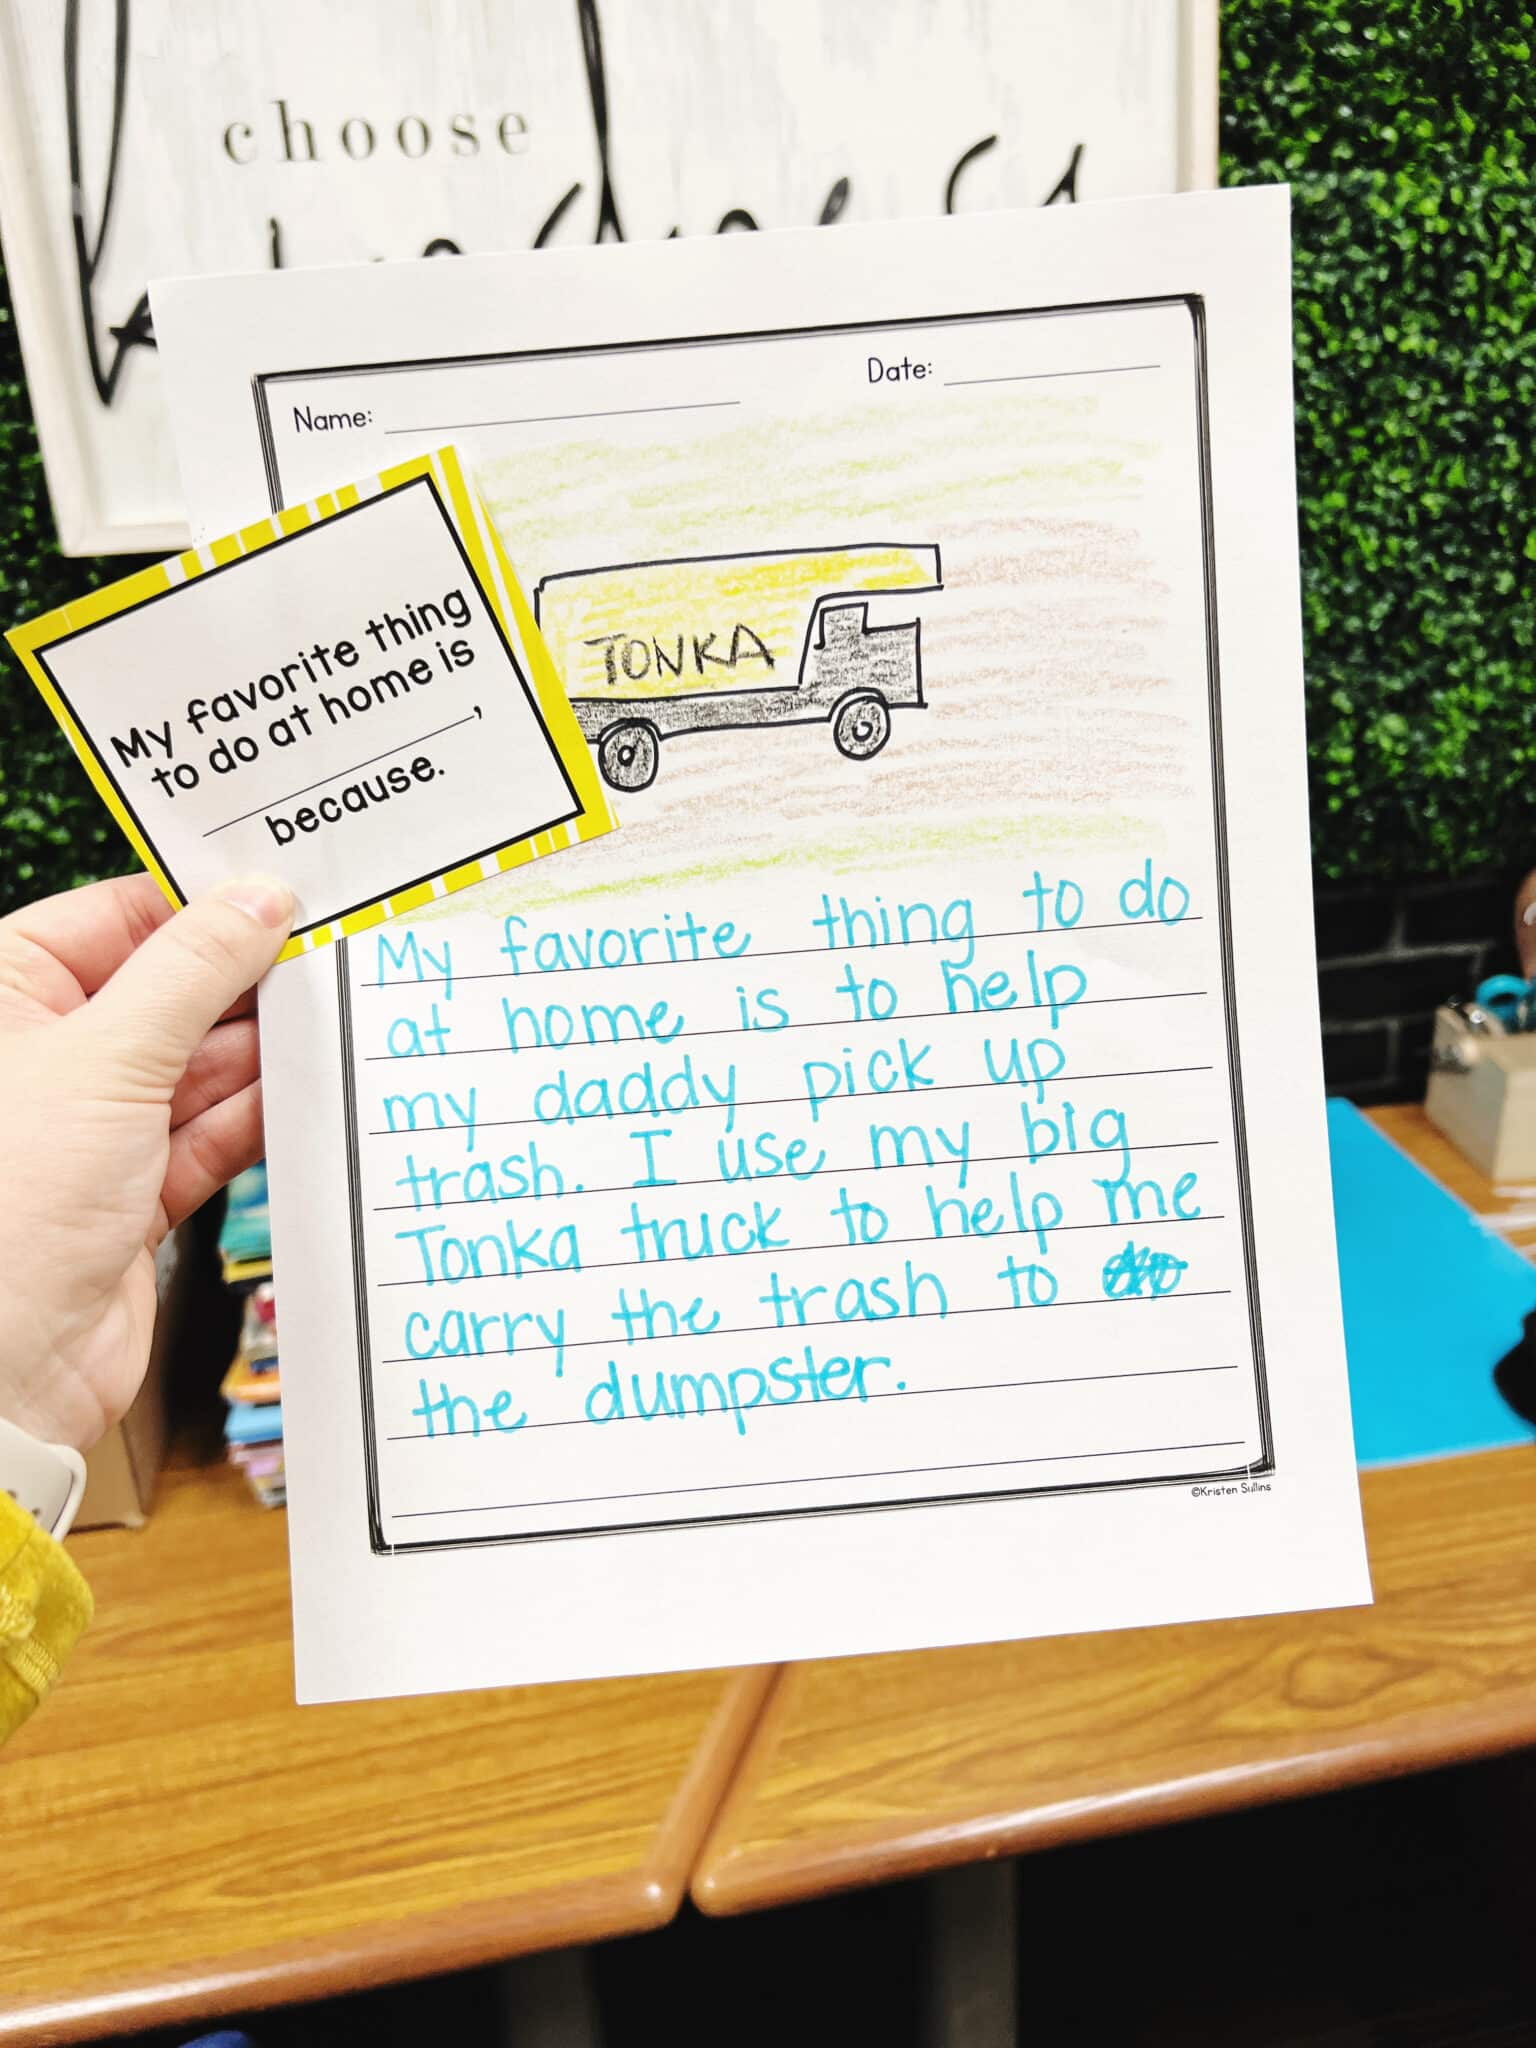 choose
kindness
Name:
Date:
My favorite thing
to do at home is
,
because.
TONKA
My favorite thing to do
at home is to help
my daddy pick up
trash. I use my big
Tonka truck to help me
carry the trash to
the dumpster.
©Kristen Sullins